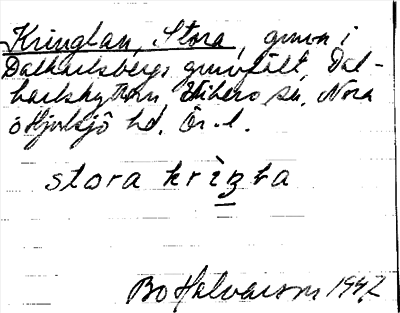 Kringlan, Stora, gruva i
Dalkarlsbergs gruvfält, Dal-
karlshyttan, sn. Nora
o Hjulsjö hd. Ör. l.
stora krìŋla
Bo Halvarson 1942